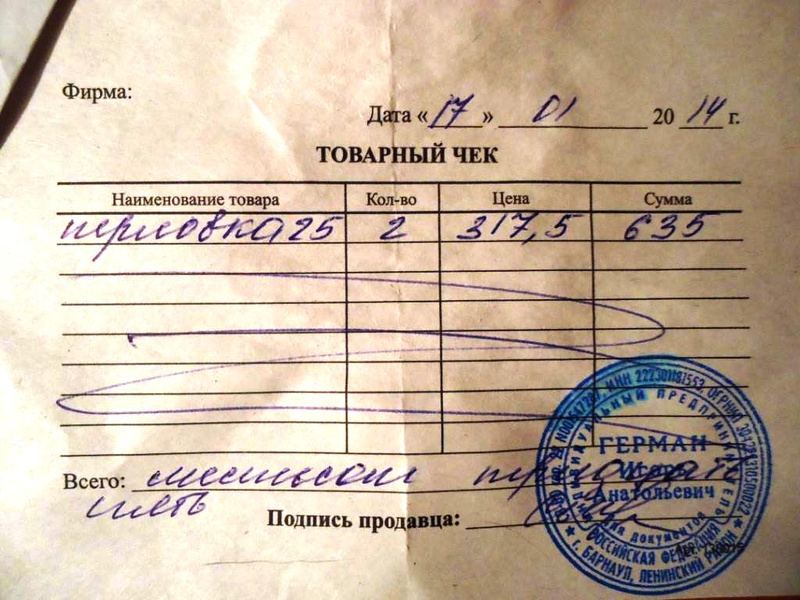 Фирма:
Дата «17» 01 2014 г.
ТОВАРНЫЙ ЧЕК
Наименование товара Кол-во Цена Сумма
перловка 25 2 317,5 635
Всего: шестьсот тридцать
пять
Подпись продавца:
ГЕРМАН
Игорь
Анатольевич
для документов
ИНДИВИДУАЛЬНЫЙ ПРЕДПРИНИМАТЕЛЬ
РОССИЙСКАЯ ФЕДЕРАЦИЯ
г. БАРНАУЛ, ЛЕНИНСКИЙ РАЙОН